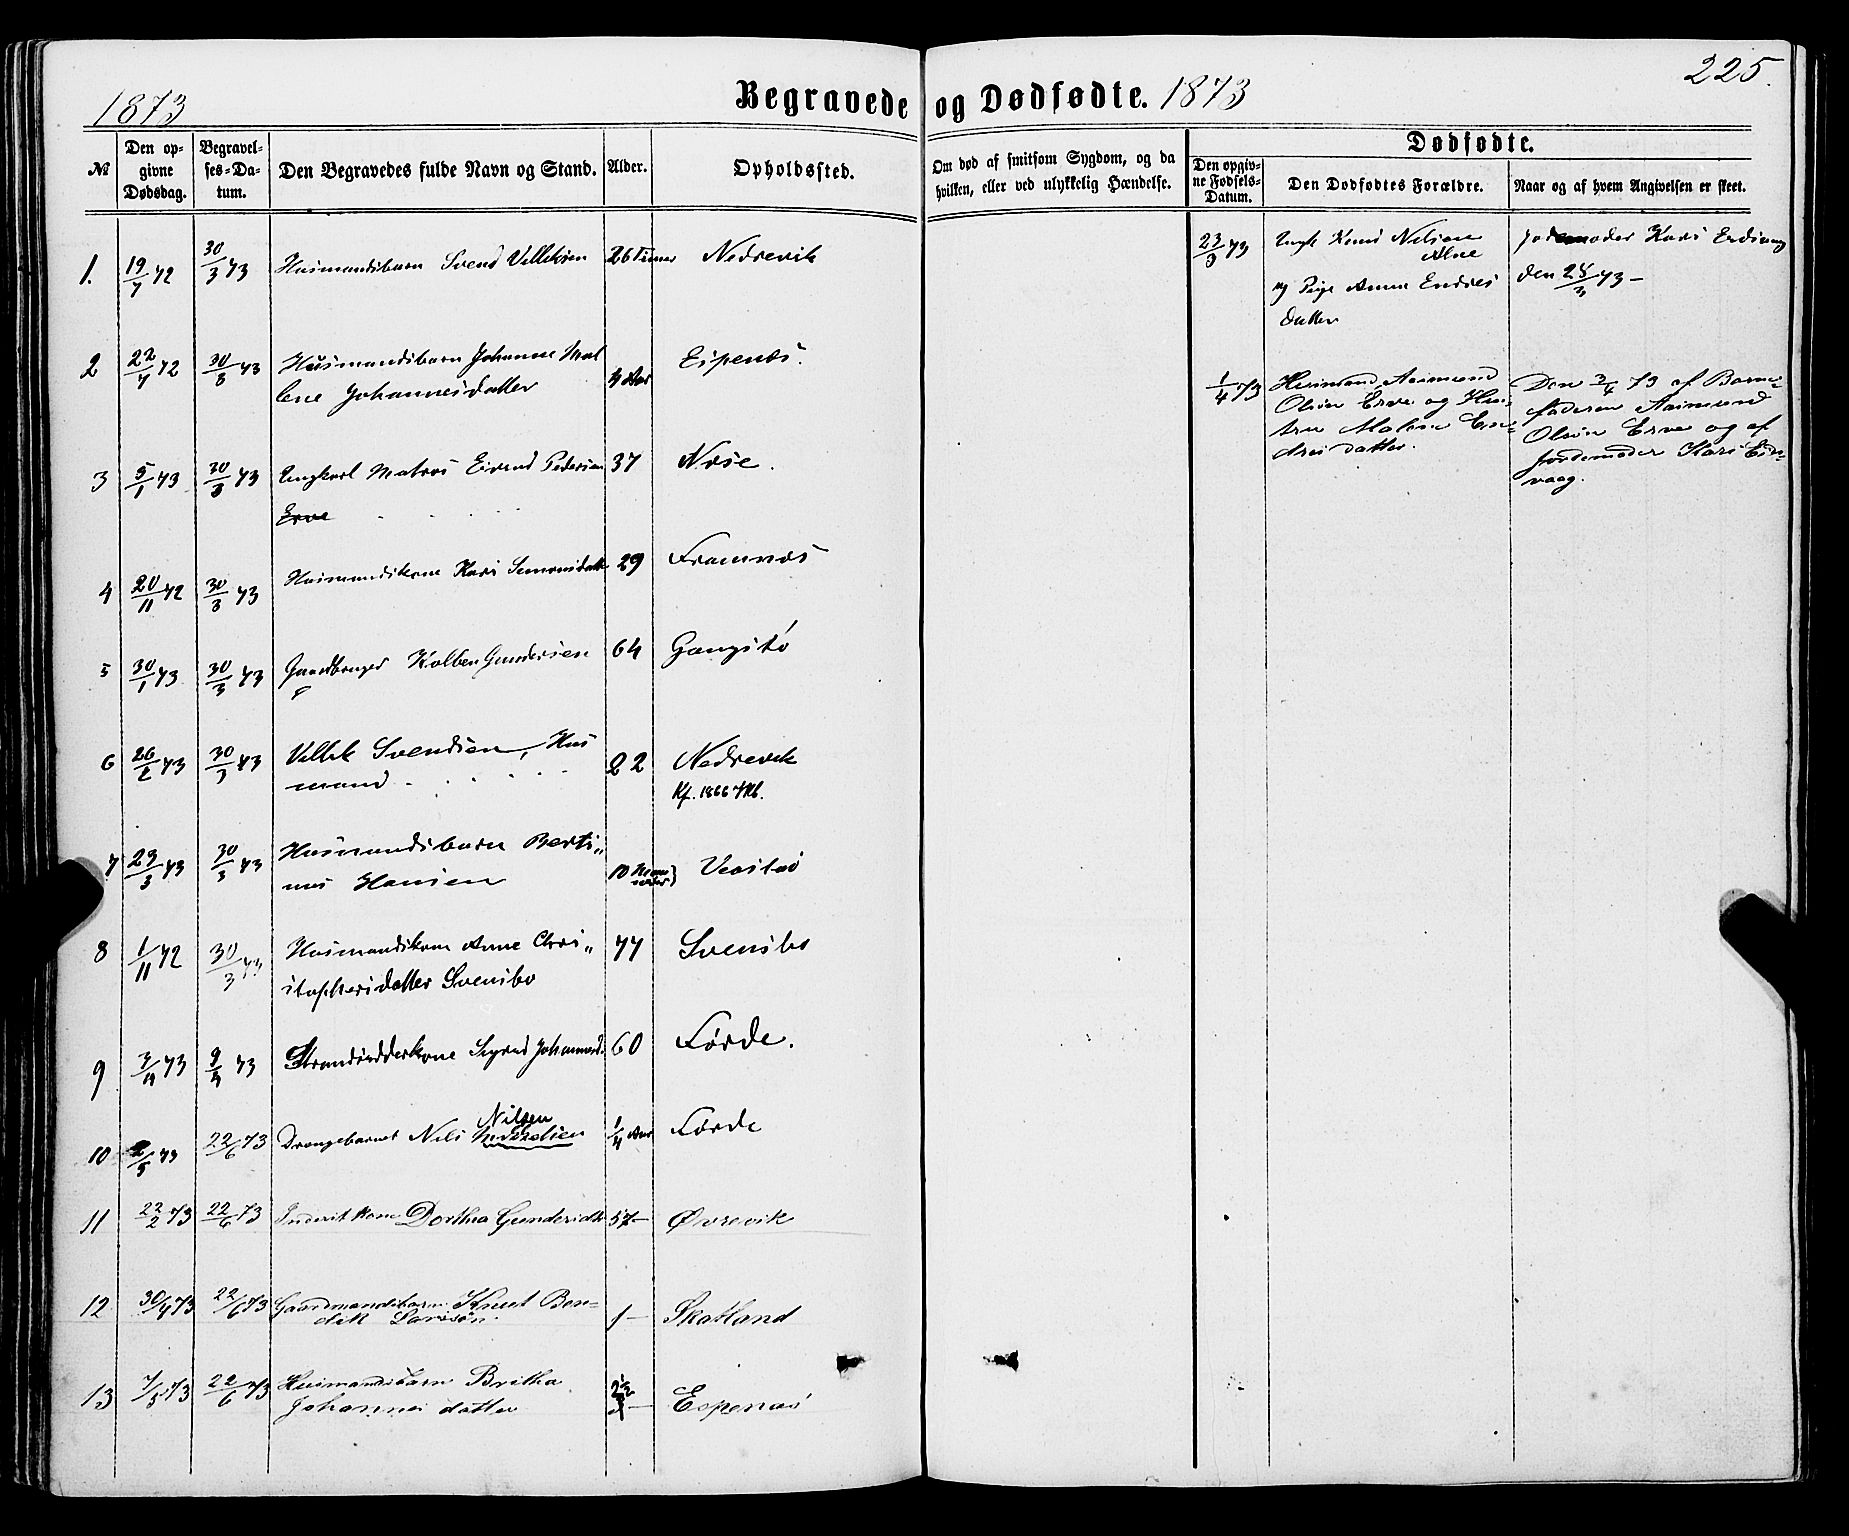 1873
Begravede og Dødfødte. 1873
225.
№
Den opgivne Dødsdag.
Begravelses-Datum.
Den Begravedes fulde Navn og Stand.
Alder.
Opholdssted.
Om død af smitsom Sygdom, og da hvilken, eller ved ulykkelig Hændelse.
Dødfødte.
Den opgivne Fødsels-Datum.
Den Dødfødtes Forældre.
Naar og af hvem Angivelsen er skeet.
1. 19/7 72 30/3 73 Husmandsbarn Svend Villiksen 26 Timer Nedrevik
2 22/7 72 30/3 73 Husmandsbarn Johanne Mal
lene Johannesdatter 4 Aar Espenæs.
3 5/1 73 30/3 73 Ungkarl Matros Eivend Pedersen 37 Nose.
Erve
4 20/11 72 30/3 73 Husmandskone Kari Simonsdatt 29 Framnæs
5 30/1 73 30/3 73 Gaardbruger Kolben Gundersen 64 Gangstø
6 26/2 73 30/3 73 Villik Svendsen, Hus
mand 22 Nedrevik
Kf. 1866
7 23/3 73 30/3 73 Husmandsbarn Berti„
nus Hansen 10 Vestbø
8 1/11 72 30/3 73 Husmandskone Anne Chri„
stophersdatter Svensbo 77 Svensbo
9 3/4 73 9/4 73 Strandsidderkone Sigrid Johannesd. 60 Førde.
10 2/5 73 22/6 73 Drengebarnet Nils
Nilsen
1/4 Aar Førde
11 22/2 73 22/6 73 Inderstkone Dorthea Gundersdtr 57— Øvrevik
12 30/4 73 22/6 73 Gaardmandsbarn Knut Ben=
dik Larssøn. 1— Skatland
13 7/5 73 22/6 73 Husmandsbarn Britha
Johannesdatter 2 1/2 — Espenæs
23/3 73 Ungk Knud Nilsen
Alne
og Pige Anna Endres
datter
Jordmoder Kari Eidsvaag
den 25/3 73 —
1/4 73 Husmand Aamund
Olsen Erve og Hus=
tru Malene En=
dresdatter.
Den 3/4 73 af Barne=
faderen Aamund
Olsen Erve og af
Jordemoder Kari Eids=
vaag.